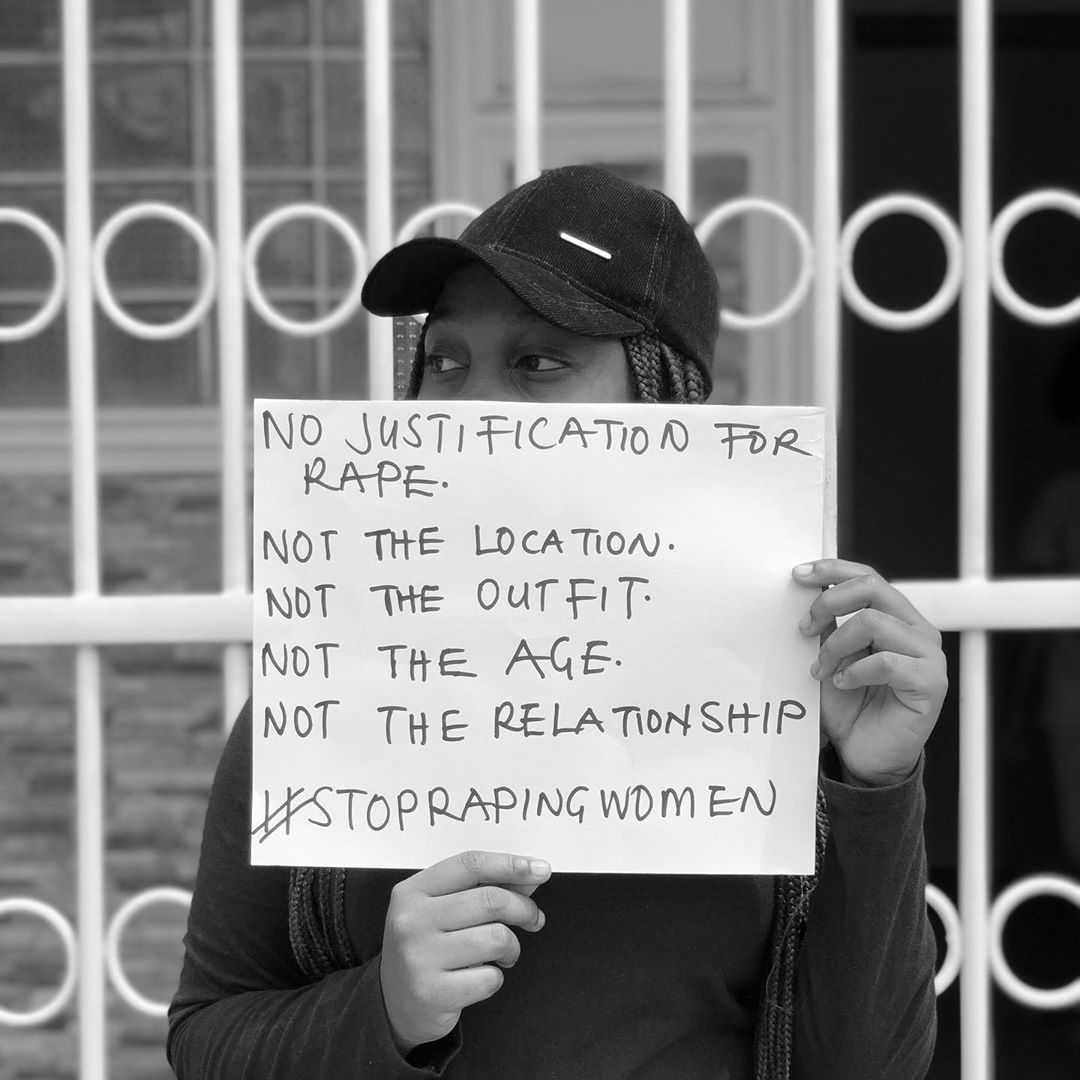 NO JUSTIFICATION FOR
RAPE.
NOT THE LOCATION.
NOT THE OUTFIT.
NOT THE AGE.
NOT THE RELATIONSHIP
#STOPRAPINGWOMEN